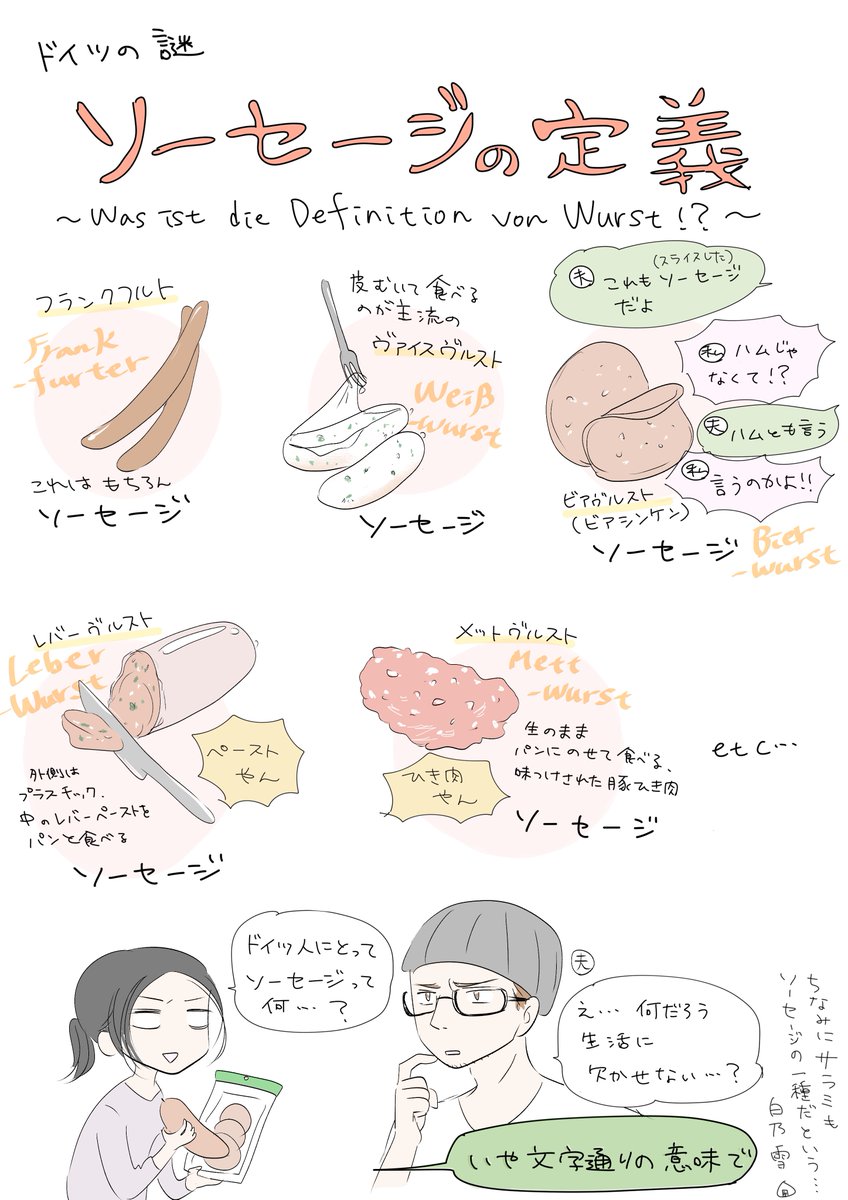 ドイツの謎
ソーセージの定義
～Was ist die Definition von Wurst!?～
フランクフルト
Frank
-furter
これは もちろん
ソーセージ
皮むいて食べる
のが主流の
ヴァイスヴルスト
Weiß
-wurst
ソーセージ
夫 これも(スライスした)ソーセージ
だよ
私 ハムじゃ
なくて!?
夫 ハムとも言う
私 言うのかよ!!
ビアヴルスト
(ビアシンケン)
ソーセージ
Bier
-wurst
レバーヴルスト
Leber
-Wurst
ペースト
やん
外側は
プラスチック、
中のレバーペーストを
パンと食べる
ソーセージ
メットヴルスト
Mett
-wurst
ひき肉
やん
生のまま
パンにのせて食べる、
味つけされた豚ひき肉
ソーセージ
etc…
ドイツ人にとって
ソーセージって
何…?
夫
え… 何だろう
生活に
欠かせない…?
いや文字通りの意味で
ちなみにサラミも
ソーセージの一種だという…
白乃雪